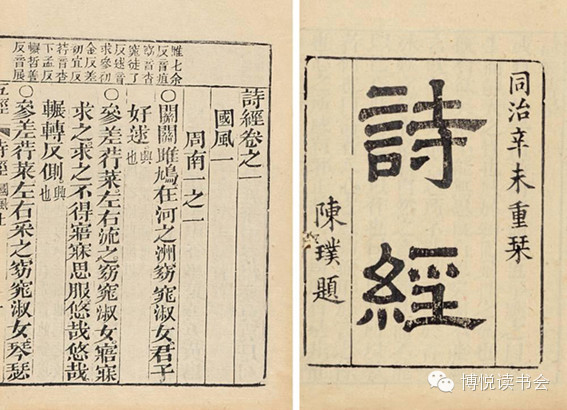 同治辛未重栞
詩經
陳璞題
詩經卷之一
國風一
周南一之一
〇關關雎鳩在河之洲窈窕淑女君子
好逑興也
〇參差荇菜左右流之窈窕淑女寤寐
求之求之不得寤寐思服悠哉悠哉
輾轉反側興也
〇參差荇菜左右采之窈窕淑女琴瑟
雎七余
窈音杳
窕徒了
反逑音
求參初
金反差
初宜反
荇音杏
下孟反
輾哲善
反音展
五經
詩經
國風
博悦读书会